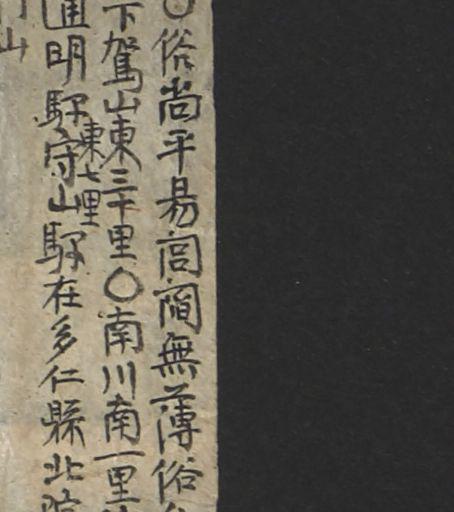 ○俗尚平易閭閻無薄俗
下駕山東三十里○南川南一里
通明驛東七里守山驛在多仁縣北
山